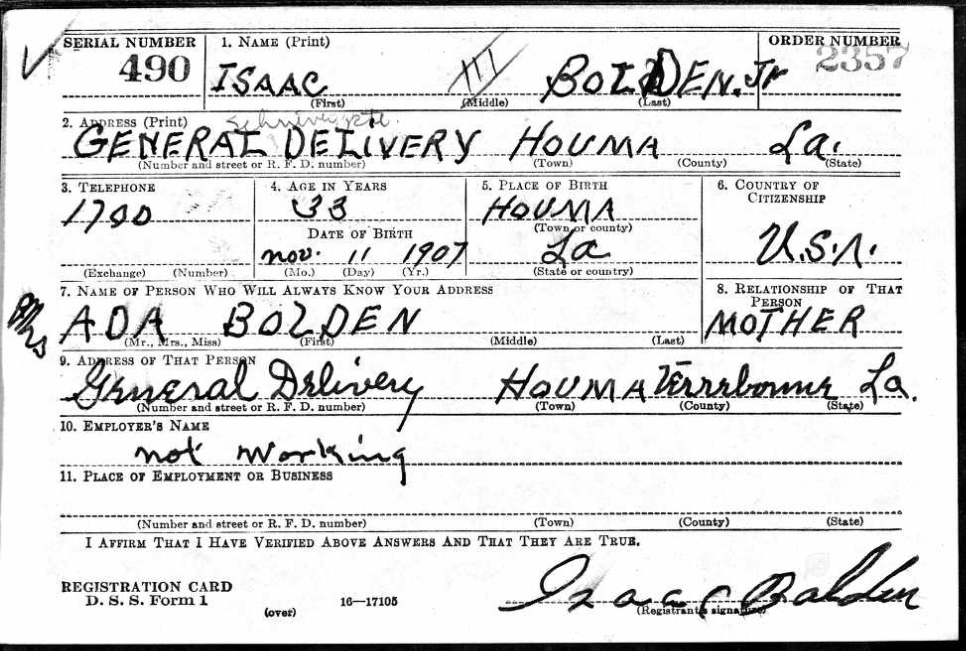 SERIAL NUMBER 1. NAME (Print) ORDER NUMBER
490 ISAAC III BOLDEN. Jr 2357
(First) (Middle) (Last)
2. ADDRESS (Print)
GENERAL DELIVERY HOUMA La.
(Number and street or R. F. D. number) (Town) (County) (State)
3. TELEPHONE 4. AGE IN YEARS 5. PLACE OF BIRTH 6. COUNTRY OF CITIZENSHIP
1700 33 HOUMA
DATE OF BIRTH (Town or county)
nov. 11 1907 La U.S.A.
(Exchange) (Number) (Mo.) (Day) (Yr.) (State or country)
7. NAME OF PERSON WHO WILL ALWAYS KNOW YOUR ADDRESS 8. RELATIONSHIP OF THAT PERSON
Mrs ADA BOLDEN MOTHER
(Mr., Mrs., Miss) (First) (Middle) (Last)
9. ADDRESS OF THAT PERSON
General Delivery HOUMA Terrebonne La.
(Number and street or R. F. D. number) (Town) (County) (State)
10. EMPLOYER'S NAME
not working
11. PLACE OF EMPLOYMENT OR BUSINESS
(Number and street or R. F. D. number) (Town) (County) (State)
I AFFIRM THAT I HAVE VERIFIED ABOVE ANSWERS AND THAT THEY ARE TRUE.
REGISTRATION CARD
D. S. S. Form 1 (over) 16—17105 Isaac Bolden
(Registrant's signature)